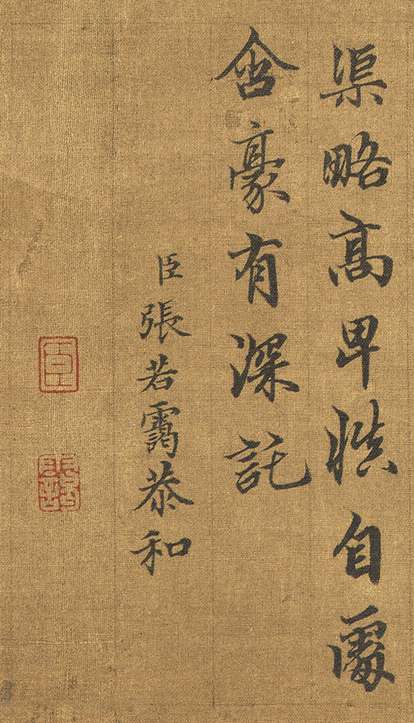 渠略高卑慎自處
含豪有深託
臣張若靄恭和
臣